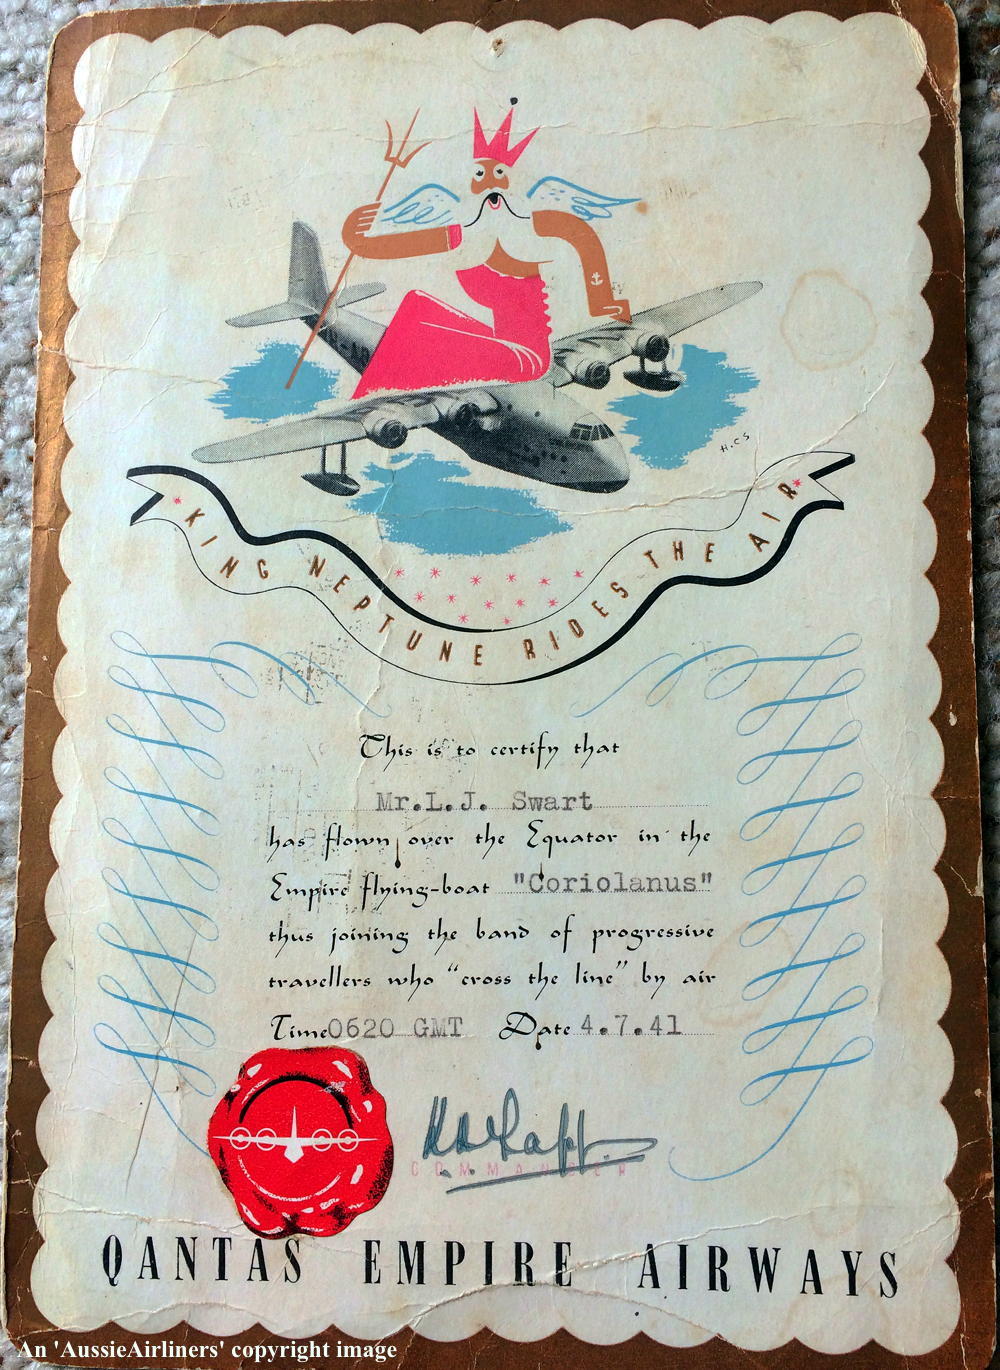 H.C.S
KING NEPTUNE RIDES THE AIR
This is to certify that
Mr.L.J. Swart
has flown over the Equator in the
Empire flying-boat "Coriolanus"
thus joining the band of progressive
travellers who "cross the line" by air
Time 0620 GMT Date 4.7.41
COMMANDER
QANTAS EMPIRE AIRWAYS
An 'AussieAirliners' copyright image